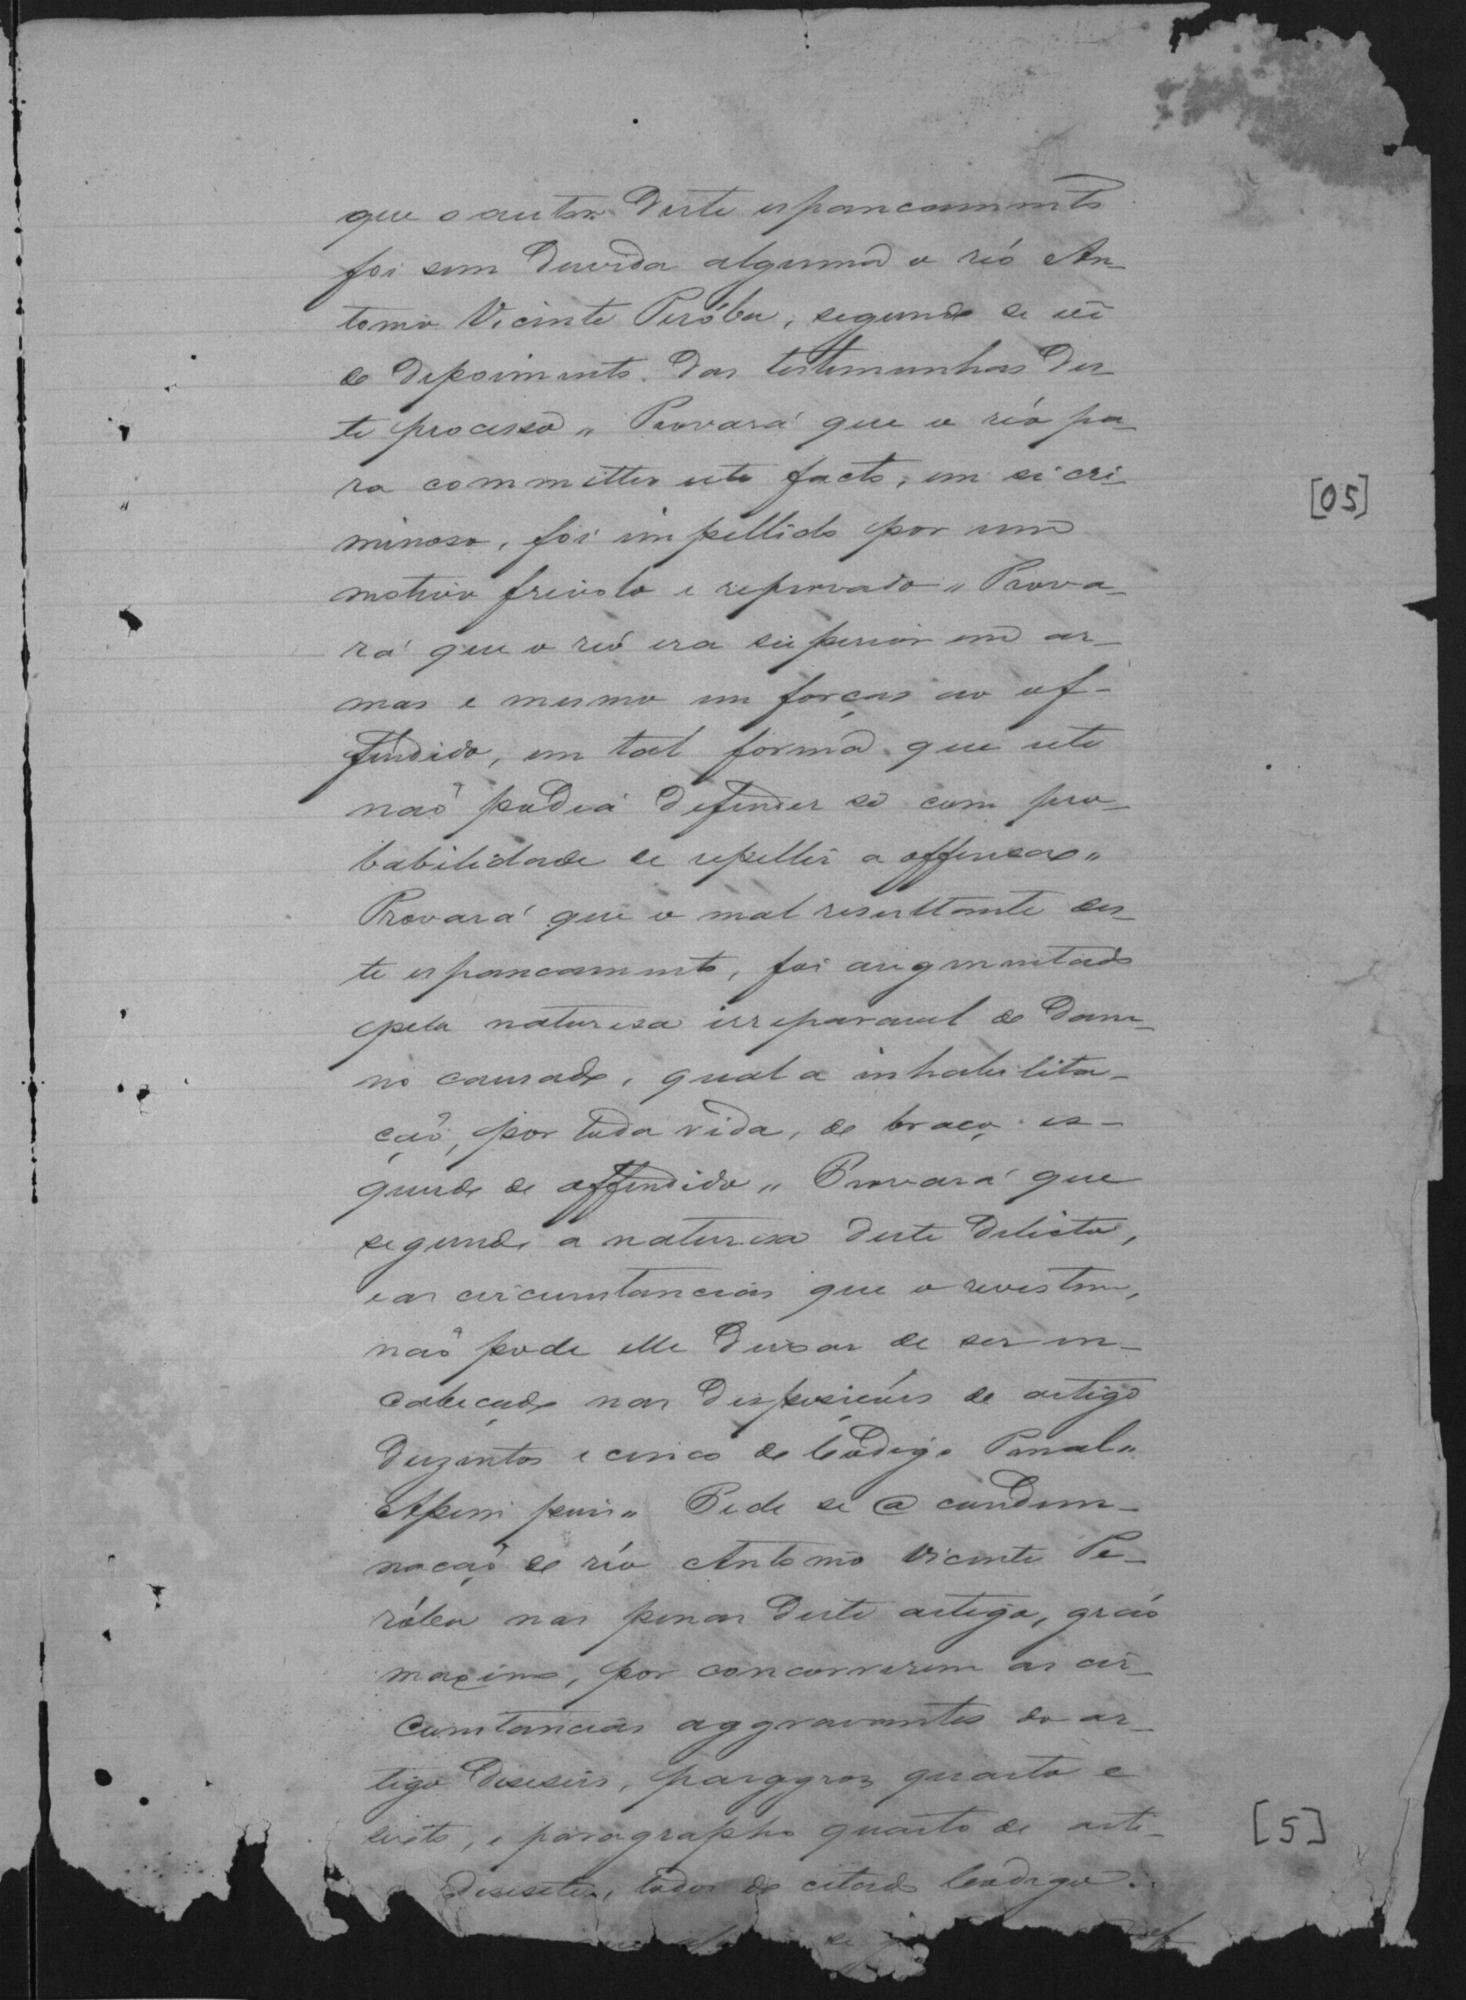 que o autor deste espancamento
foi sem duvida alguma o réo An-
tonio Vicente Peróba, segundo se vê
do depoimento das testemunhas des-
te processo „ Provará que o réo pa-
ra committer este facto, em si cri-
minoso, foi impellido por um
motivo frivolo e reprovado „ Prova-
rá que o réo era superior em ar-
mas e mesmo em forças ao of-
fendido, em tal forma que este
naõ podia defender se com pro-
babilidade de repellir a offensa „
Provará que o mal resultante des-
te espancamento, foi augmentado
pela naturesa irreparavel do dam-
no causado, qual a inhabilita-
çaõ, por toda vida, do braço es-
querdo do offendido „ Provará que
segundo a naturesa deste delicto,
e as circumstancias que o revestem,
naõ pode elle deixar de ser in-
cabeçado nas disposicões do artigo
duzentos e cinco do Codigo Penal „
Assim pois „ Pede se a condem-
naçaõ do réo Antonio Vicente Pe-
róba nas penas deste artigo, gráo
maximo, por concorrerem as cir-
cumstancias aggravantes do ar-
tigo deseseis, paragrafos quarto e
sexto, e paragrapho quarto do arti-
desesete, todos do citado Codigo.
se
[05]
[5]